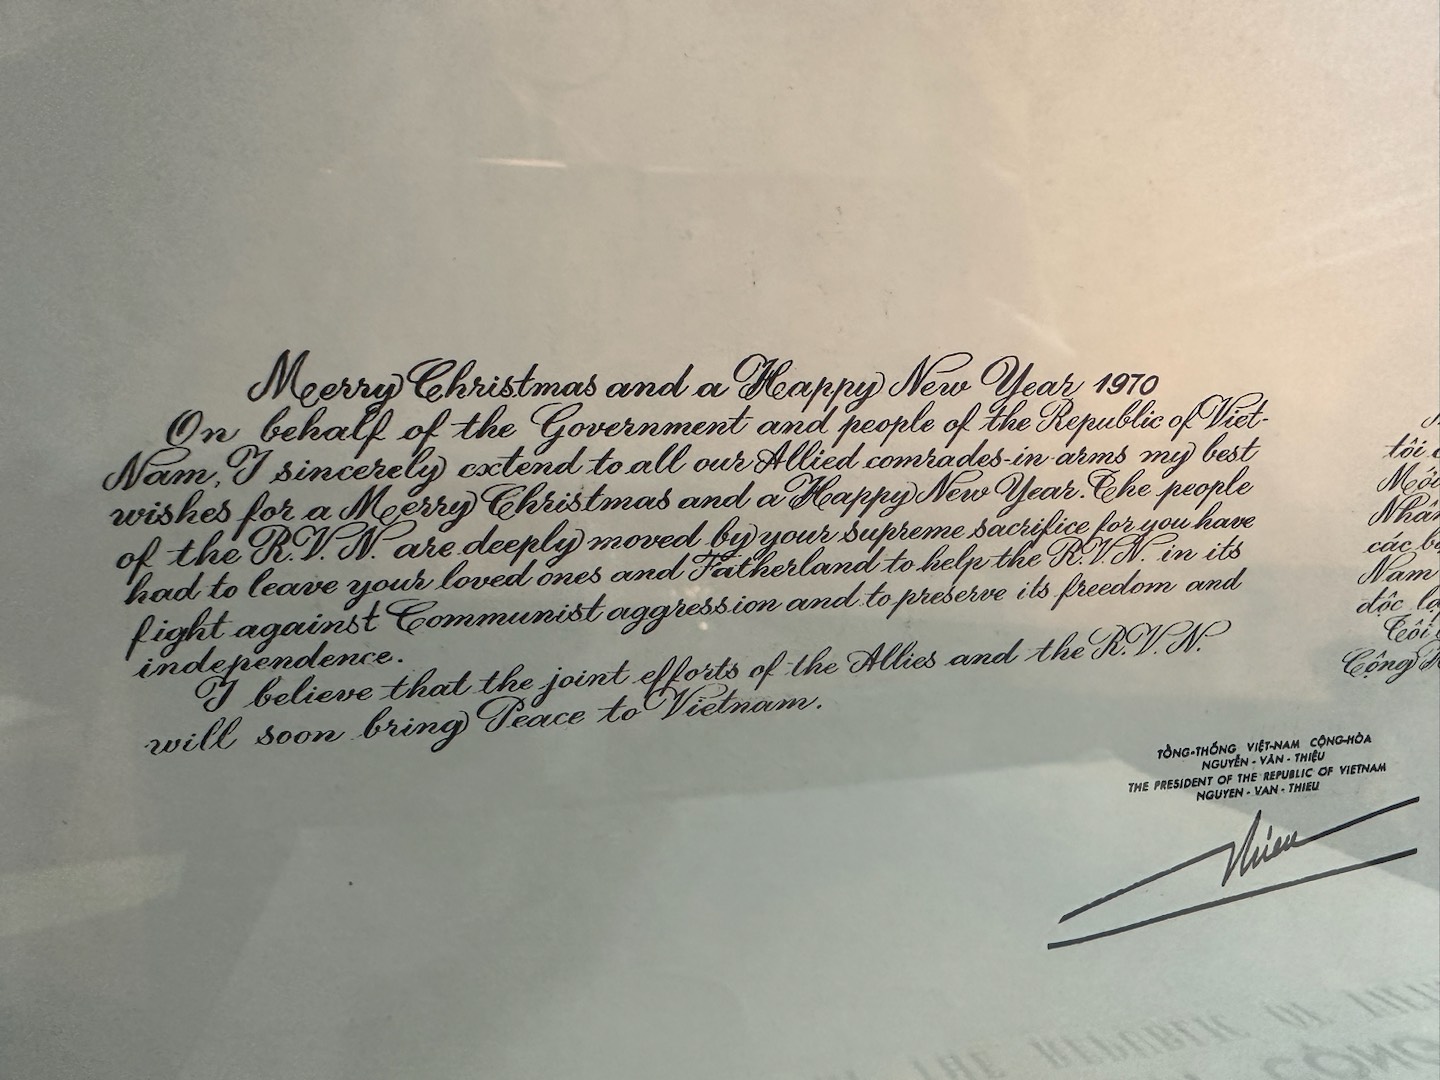 Merry Christmas and a Happy New Year 1970
On behalf of the Government and people of the Republic of Viet-
Nam, I sincerely extend to all our Allied comrades-in-arms my best
wishes for a Merry Christmas and a Happy New Year. The people
of the R.V.N. are deeply moved by your supreme sacrifice for you have
had to leave your loved ones and Fatherland to help the R.V.N. in its
fight against Communist aggression and to preserve its freedom and
independence.
I believe that the joint efforts of the Allies and the R.V.N.
will soon bring Peace to Vietnam.
tôi
Nhân
các
Nam
độc
Tôi
Cộng
TỔNG-THỐNG VIỆT-NAM CỘNG-HÒA
NGUYỄN-VĂN-THIỆU
THE PRESIDENT OF THE REPUBLIC OF VIETNAM
NGUYEN-VAN-THIEU
Thieu
THE REPUBLIC OF
CỘNG